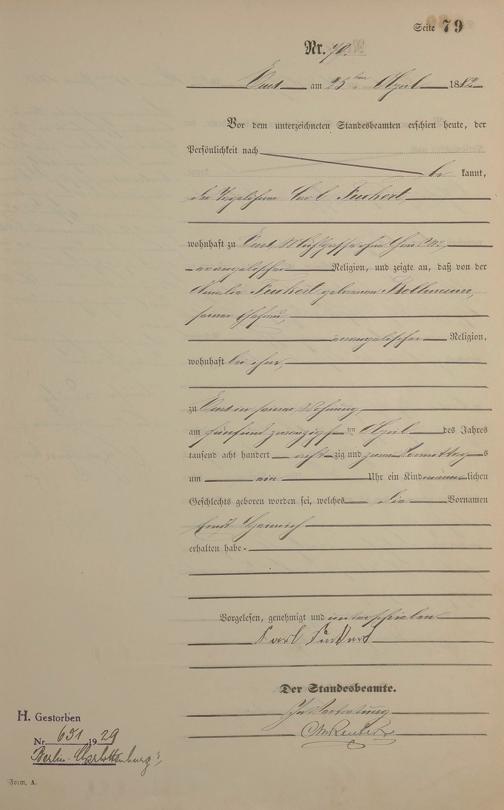 Seite 79
Nr. 78
am 25ten April 1882
Vor dem unterzeichneten Standesbeamten erschien heute, der
Persönlichkeit nach
be kannt,
der Carl
wohnhaft zu
evangelischer Religion, und zeigte an, daß von der
geborenen
seiner Ehefrau,
evangelischer Religion,
wohnhaft bei ihm,
zu in seiner Wohnung,
am fünf und zwanzigsten April des Jahres
tausend acht hundert acht zig und zwei Vormittags
um ein Uhr ein Kind männ lichen
Geschlechts geboren worden sei, welches die Vornamen
Ernst Heinrich
erhalten habe.
Vorgelesen, genehmigt und unterschrieben
Karl
Der Standesbeamte.
In Vertretung
H. Gestorben
Nr. 631 1929
Berlin-Charlottenburg
Form. A.